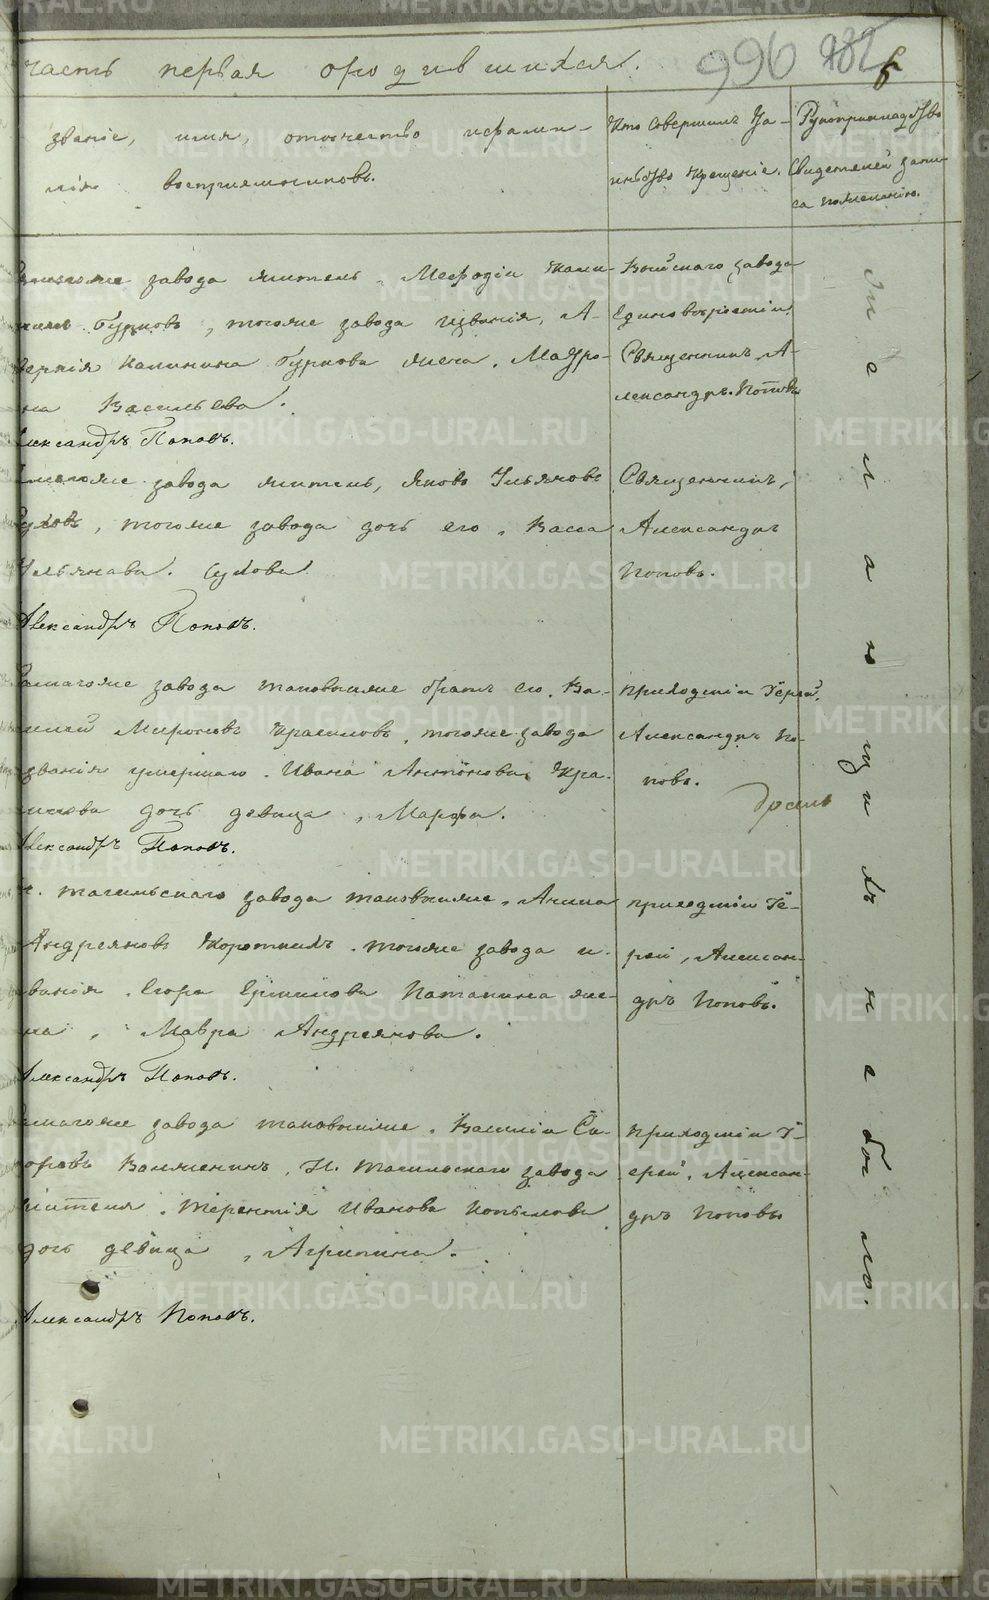 часть первая о родившихся.
996
882
6
званіе, имя, отчество и фами-
лія воспріемниковъ.
Кто совершилъ Та-
инство крещеніе.
Рукоприкладство
Свидетелей запи-
са по желанію.
завода житель, Мефодіи Кали-
Бурковъ, тогоже завода и званія, А-
веркія Калинина Буркова жена, Мавро-
на Васильева.
Александръ Поповъ.
Выйскаго завода
Единоверческіи
Священникъ, А-
лександръ Поповъ
завода житель, Яковъ Ульяновъ
Суловъ, тогоже завода дочь его, Васса
Ульянова Сулова.
Александръ Поповъ.
Священникъ,
Александръ
Поповъ.
завода таковыиже братъ его, Ва-
силей Мироновъ Красиловъ, тогоже завода
званія умершаго Ивана Антонова Кра-
силова дочь девица, Марфа.
Александръ Поповъ.
приходскіи Іерей,
Александръ По-
повъ.
тагильскаго завода таковыиже, Акима
Андреяновъ Короткихъ тогоже завода и
званія, Егора Ермилова Потапина же-
на, Мавра Андреянова.
Александръ Поповъ.
приходскіи Іе-
рей, Алексан-
дръ Поповъ.
завода таковыиже, Василіи Си-
доровъ Н. Тагильскаго завода
жителя, Терентія Иванова Копылова
дочь девица, Агрипина.
Александръ Поповъ.
приходскіи І-
ерей, Алексан-
дръ Поповъ
METRIKI.GASO-URAL.RU